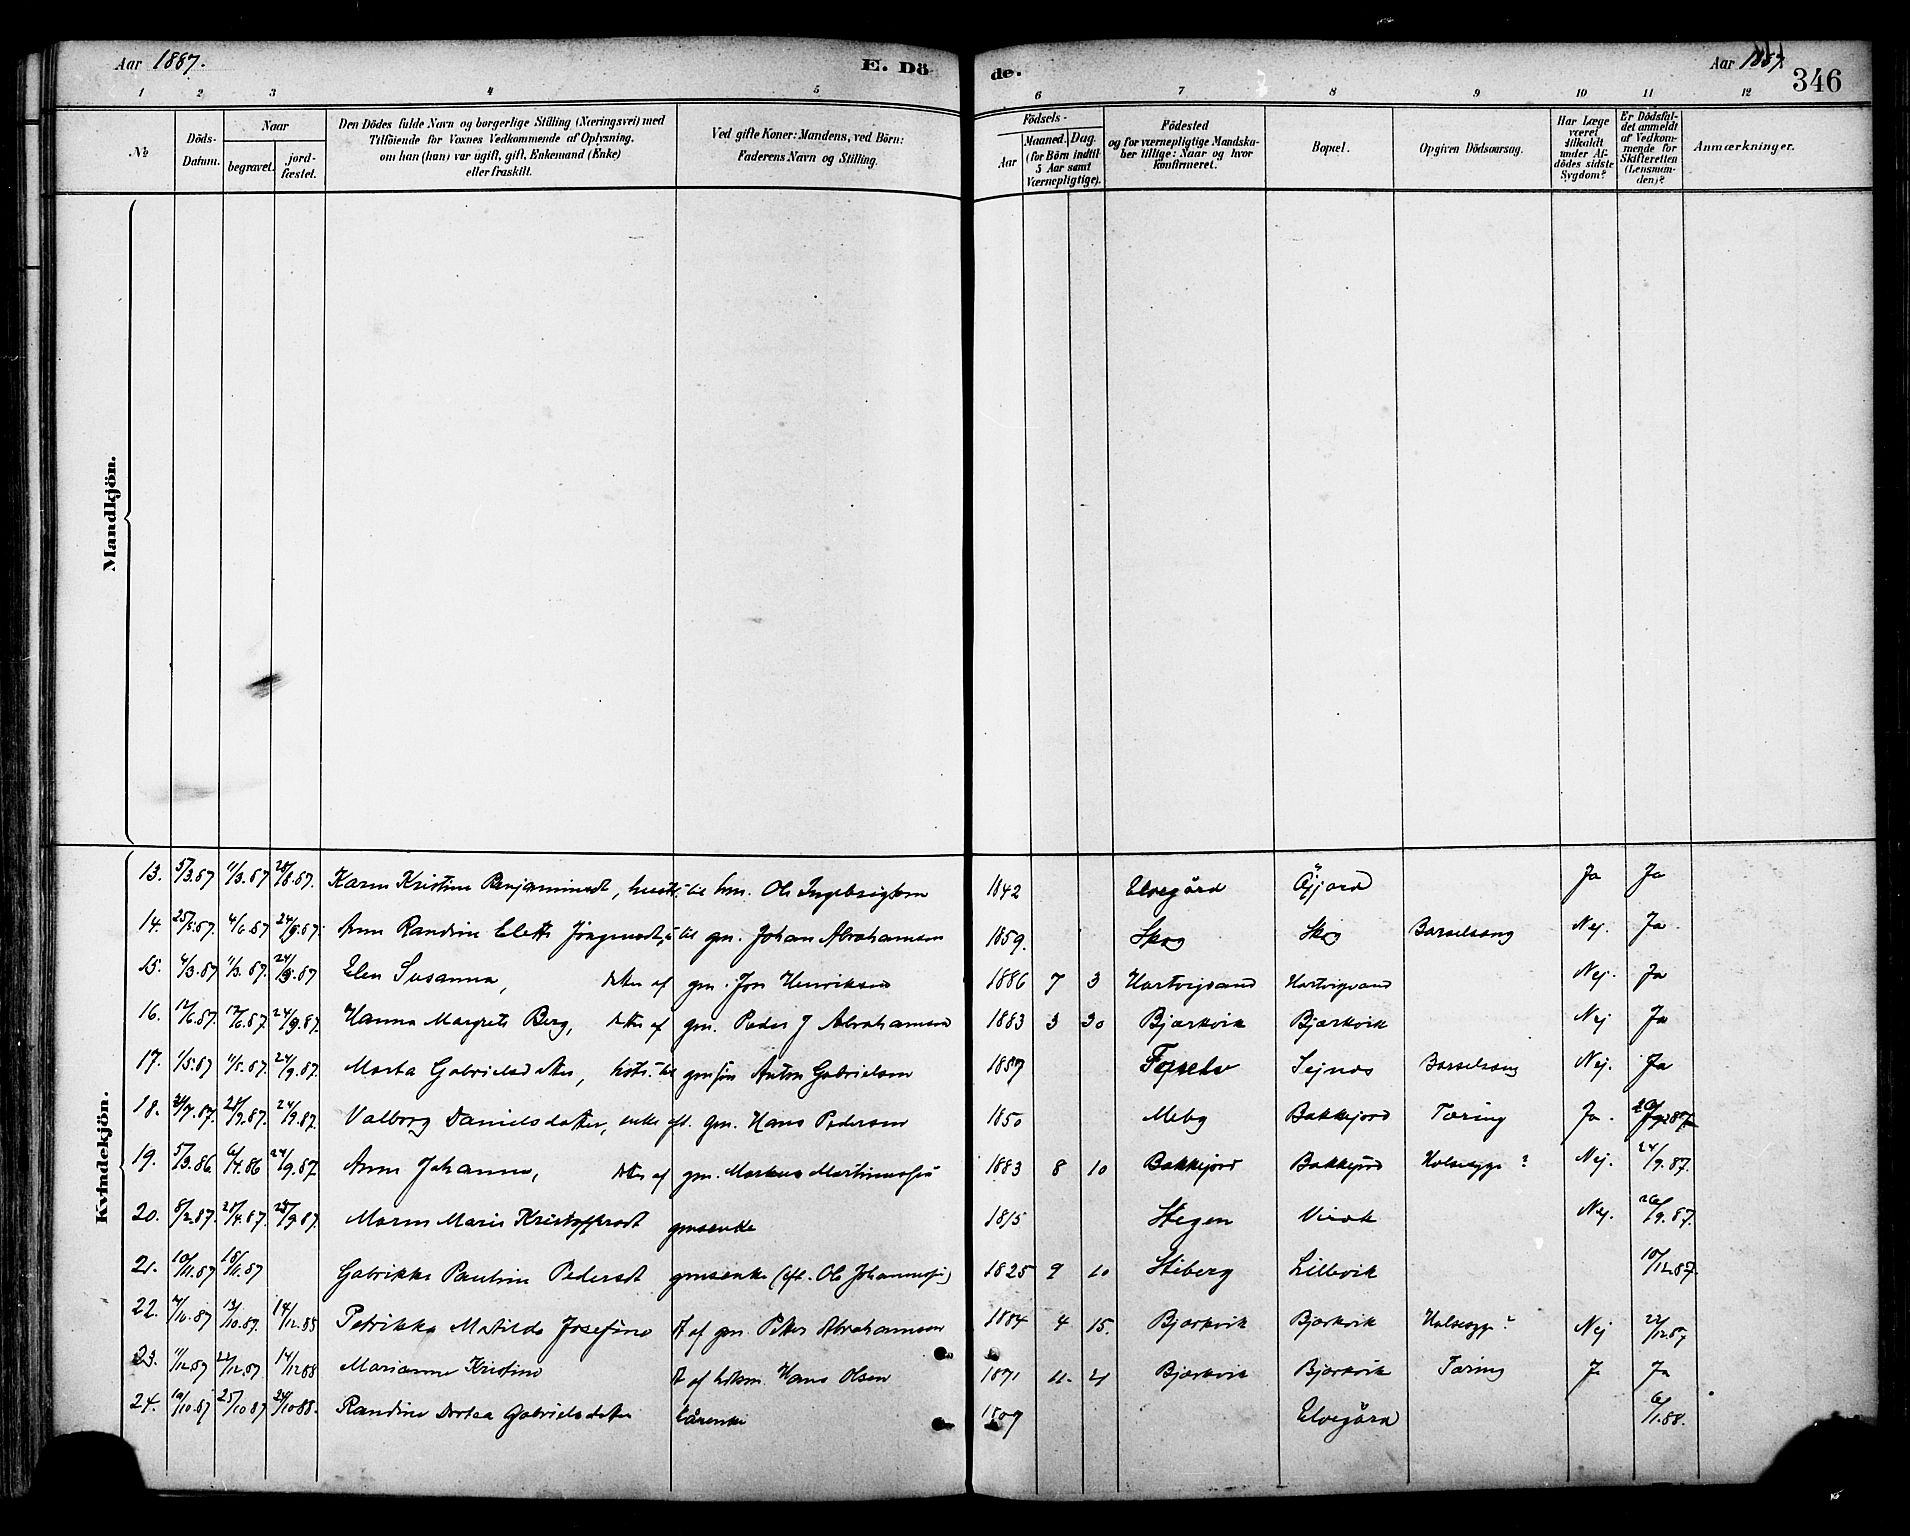 Aar 1887. E. Dö de. Aar 1887. 346
1 2 3 4 5 6 7 8 9 10 11 12
№
Döds-Datum.
Naar
begravet.
jordfæstet.
Den Dödes fulde Navn og borgerlige Stilling (Næringsvei) med
Tilföiende for Voxnes Vedkommende af Oplysning,
om han (hun) var ugift, gift, Enkemand (Enke)
eller fraskilt.
Ved gifte Koner: Mandens, ved Börn:
Faderens Navn og Stilling.
Födsels-
Aar
Maaned. Dag.
(for Börn indtil
5 Aar samt
Værnepligtige).
Födested
og for værnepligtige Mandska-
ber tillige: Naar og hvor
konfirmeret.
Bopæl.
Opgiven Dödsaarsag.
Har Læge
været
tilkaldt
under Af-
dödes sidste
Sygdom?
Er Dödsfal-
det anmeldt
af Vedkom-
mende for
Skifteretten
(Lensman-
den)?
Anmærkninger.
Mandkjön.
Kvindekjön.
13. 5/3.87 11/3.87 Karen Kristine Benjaminsdt, hustr. til hm. Ole Ingebrigtsen 1842 Elvegård Ja Ja
14. 24/9.87. Anne Randine til gm. Johan Abrahamsen 1859. Skog Skog Barselseng Nej. Ja.
15. 4/3.87 11/3.87. Elen Susanna, datter af gm. Jon Henriksen 1886 7 3 Hartvigsand Hartvigsand Nej. Ja
16. 12/6.87. 17/6.87. 24/9.87. Hanna Margrete Berg, datter af gm. Peder J Abrahamsen 1883 3 30 Bjerkvik Bjerkvik Nej Ja
17. 1/5.87 11/5.87. 24/9.87. Marta Gabrielsdatter, Anton Gabrielsen 1857 Sejnes Barselseng Nej. Ja
18. 24/9.87. Valborg Danielsdatter, enke eft. gm. Hans Pedersen 1850 Meby Bakkejord Tæring Ja.
19. 5/3.86 6/4.86 24/9.87. Anne Johanna, datter af gm. Markus 1883 8 10 Bakkejord Bakkejord Halssyge? Nej. 24/9.87.
20. 8/2.87. 25/9.87. Maren Marie Kristoffersdt gmsenke 1815 Stegen Virak Nej. 26/9.87.
21. 10/11.87 18/11.87 Gabrikke Pauline Pedersdt gmsenke (eft. Ole 1825 9 10 Stiberg Lillevik 10/12.87.
22. 7/10.87 13/10.87. 14/12.88 Petrikke Matilde Josefine d. af gm. Peter Abrahamsen 1884 4 15. Bjerkvik Bjerkvik Halssyge? Nej 22/12.87
23. 11/12.87 22/12.87 14/12.88 Marianne Kristine d. af Hans Olsen 1871 11. 21 Bjerkvik Bjerkvik Tæring J Ja
24. 19/10.87 25/10.87 24/10.88. Randine Dortea Gabrielsdatter kårenke 1809 Elvegård 6/1.88.